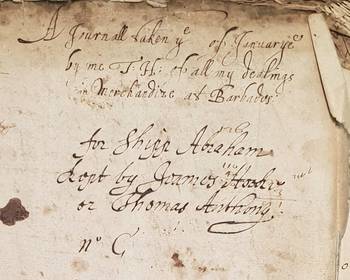 A Journall taken yᵉ of January yᵉ
by me T: H: of all my dealings
in Merchandize at Barbados
for Shipp Abraham
Kept by Joames
or Thomas Anthony
nº C